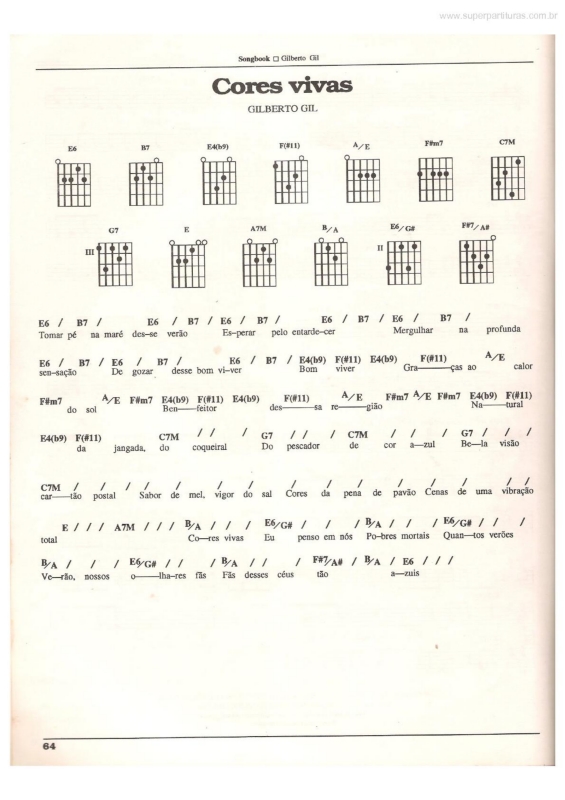 www.superpartituras.com.br
Songbook □ Gilberto Gil
Cores vivas
GILBERTO GIL
E6 B7 E4(b9) F(#11) A/E F#m7 C7M
G7 E A7M B/A E6/G# F#7/A#
III II
E6 / B7 / E6 / B7 / E6 / B7 / E6 / B7 / E6 / B7 /
Tomar pé na maré des-se verão Es-perar pelo entarde-cer Mergulhar na profunda
E6 / B7 / E6 / B7 / E6 / B7 / E4(b9) F(#11) E4(b9) F(#11) A/E
sen-sação De gozar desse bom vi-ver Bom viver Gra—ças ao calor
F#m7 A/E F#m7 E4(b9) F(#11) E4(b9) F(#11) A/E F#m7 A/E F#m7 E4(b9) F(#11)
do sol Ben—feitor des—sa re—gião Na—tural
E4(b9) F(#11) C7M / / / G7 / / / C7M / / / G7 / / /
da jangada, do coqueiral Do pescador de cor a-zul Be-la visão
C7M / / / / / / / / / / / / / / /
car—tão postal Sabor de mel, vigor do sal Cores da pena de pavão Cenas de uma vibração
E / / / A7M / / / B/A / / / E6/G# / / / B/A / / / E6/G# / / /
total Co—res vivas Eu penso em nós Po-bres mortais Quan-tos verões
B/A / / / E6/G# / / / B/A / / / F#7/A# / B/A / E6 / / /
Ve—rão, nossos o—lha-res fãs Fãs desses céus tão a—zuis
64